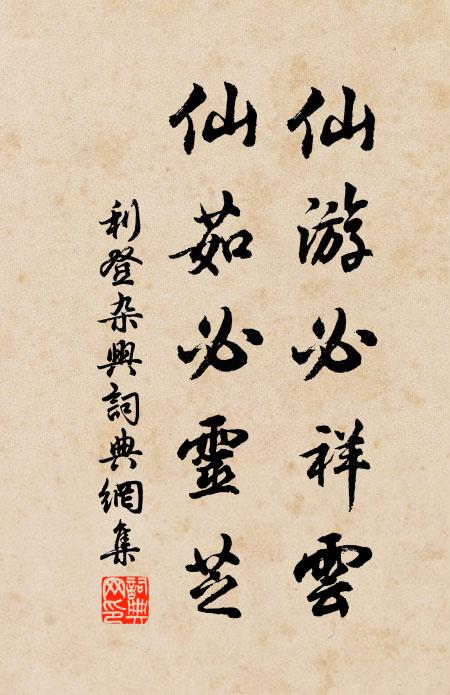 仙游必祥雲
仙茹必靈芝
利登杂興詞典網集
詞典